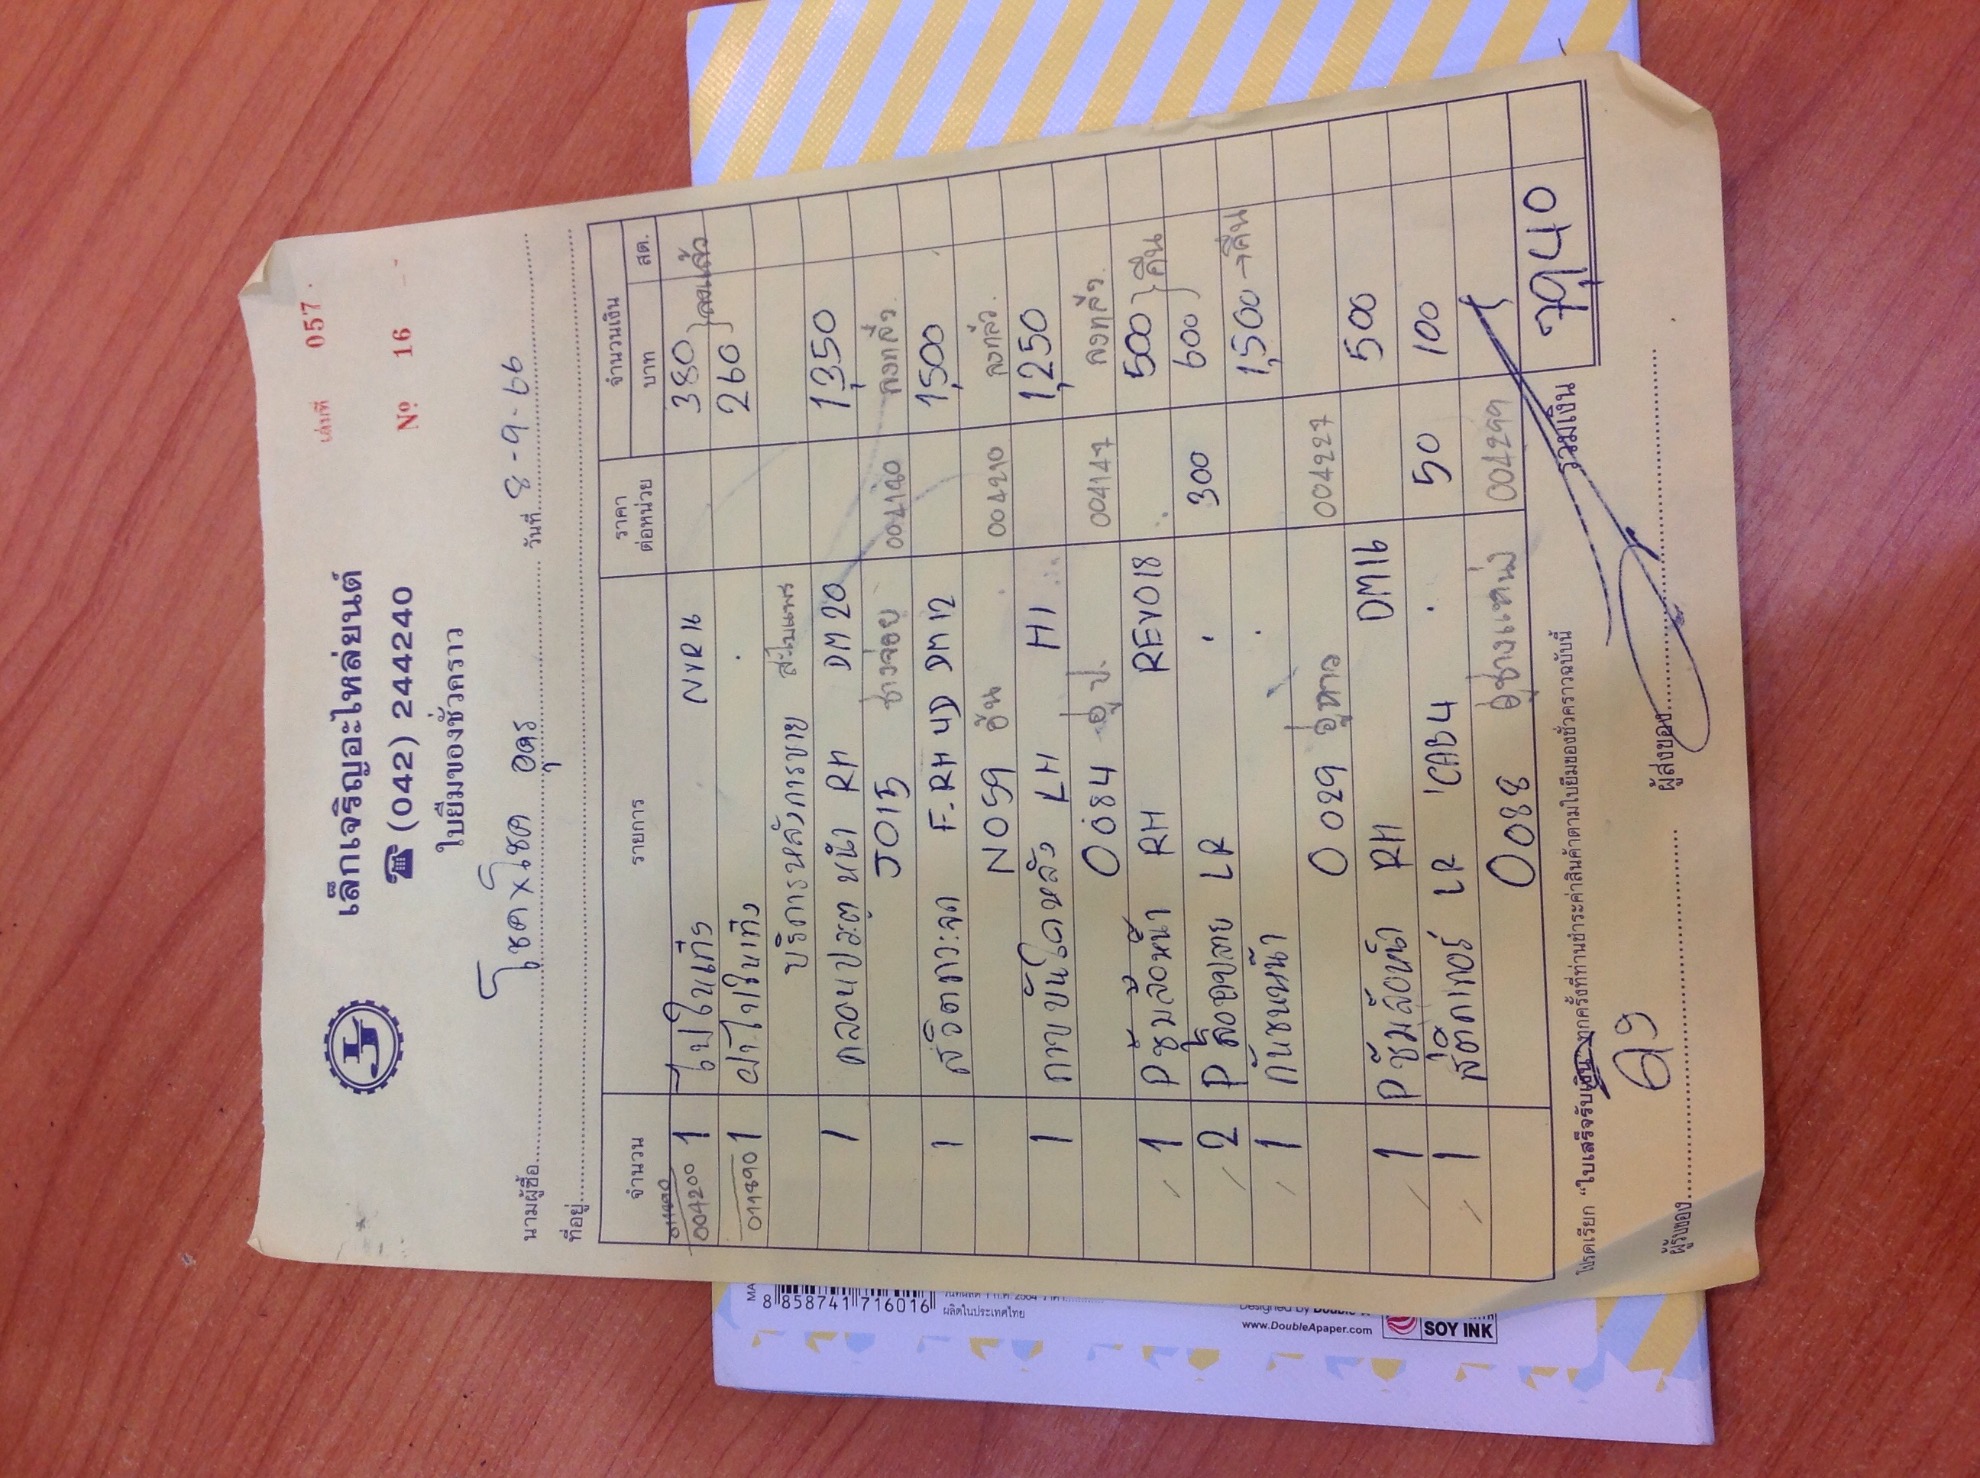 เล่มที่ 057
เล็กเจริญอะไหล่ยนต์
☎ (042) 244240
Nº 16
ใบยืมของชั่วคราว
นามผู้ซื้อ โชคxโชค อุดร วันที่ 8-9-66
ที่อยู่
จำนวน รายการ ราคาต่อหน่วย จำนวนเงิน
บาท สต.
004200 1 ไฟในเก๋ง NVR16 380 } ลงแล้ว
011890 1 ฝาไฟในเก๋ง . 260
บริการหลังการขาย
1 คลองประตู หน้า RH DM20 1,350
J015 ช่างจ่อย 004190
1 สวิตกระจก F-RH 4D DM12 1,500
N059 004210
1 กาบบันไดหลัง LH HI 1,250
0084 อู่ ป. 004147
1 P ซุ้มล้อหน้า RH REVO18 500 } คืน
2 P LR . 300 600
1 กันชนหน้า . 1,500 → คืน
0029 อู่ 004227
1 P ซุ้มล้อหน้า RH DM16 500
1 สติกเกอร์ LR CAB4 . 50 100
0088 004299
รวมเงิน 7940
โปรดเรียก "ใบเสร็จรับเงิน" ทุกครั้งที่ท่านชำระค่าสินค้าตามใบยืมของชั่วคราวฉบับนี้
ผู้รับของ ผู้ส่งของ
MA
8 858741 716016
ผลิตในประเทศไทย
Designed by Double A
www.DoubleApaper.com
SOY INK